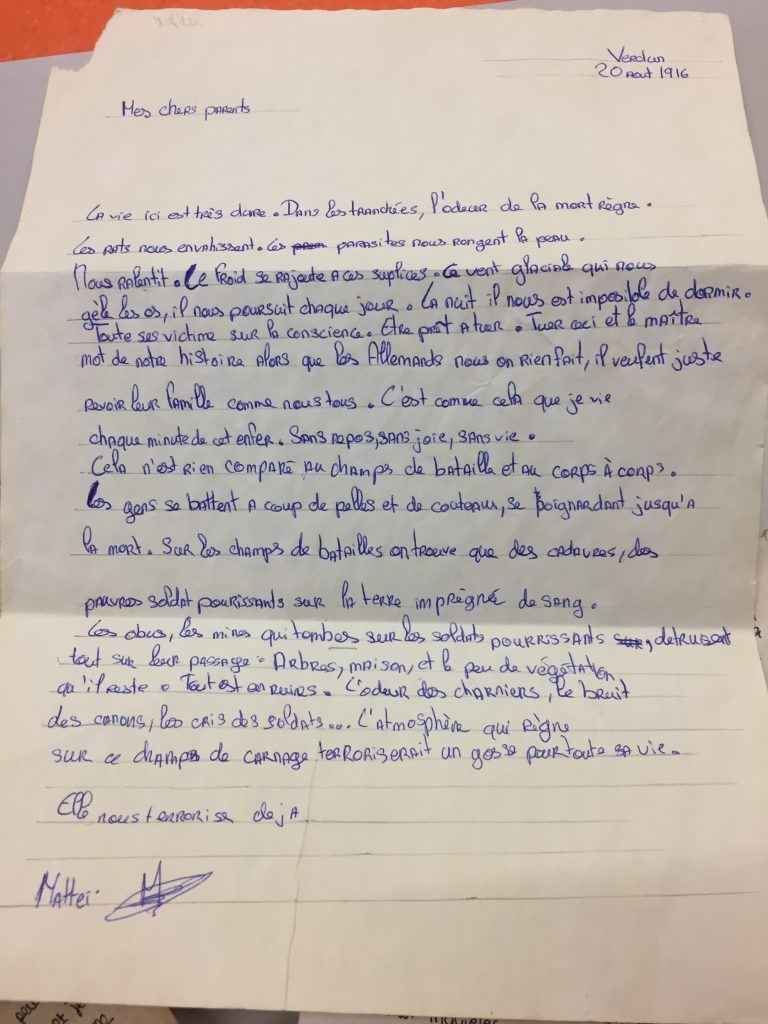 Verdun
20 Aout 1916
Mes chers parents
La vie ici est très dure. Dans les tranchées, l'odeur de la mort règne.
Les rats nous envahissent. Les parasites nous rongent la peau.
Nous ralentit. Le froid se rajoute a ces suplices. Ce vent glaciale qui nous
gèle les os, il nous poursuit chaque jour. La nuit il nous est imposible de dormir.
Toute ses victime sur la conscience. Etre pret a tuer. Tuer ceci et le maître
mot de notre histoire alors que les Allemands nous on rien fait, il veulent juste
revoir leur famille comme nous tous. C'est comme cela que je vie
chaque minute de cet enfer. Sans repos, sans joie, sans vie.
Cela n'est rien comparé au champs de bataille et au corps à corps.
Les gens se battent a coup de pelles et de couteaux, se poignardant jusqu'a
la mort. Sur les champs de batailles on trouve que des cadavres, des
pauvres soldat pourissants sur la terre imprègné de sang.
Les obus, les mines qui tombes sur les soldats pourrissants, detruisent
tout sur leur passage. Arbres, maison, et le peu de végétation
qu'il reste. Tout est en ruines. L'odeur des charniers, le bruit
des canons, les cris des soldats... L'atmosphère qui règne
sur ce champs de carnage terroriserait un gosse pour toute sa vie.
Elle nous terrorise deja
Mattei